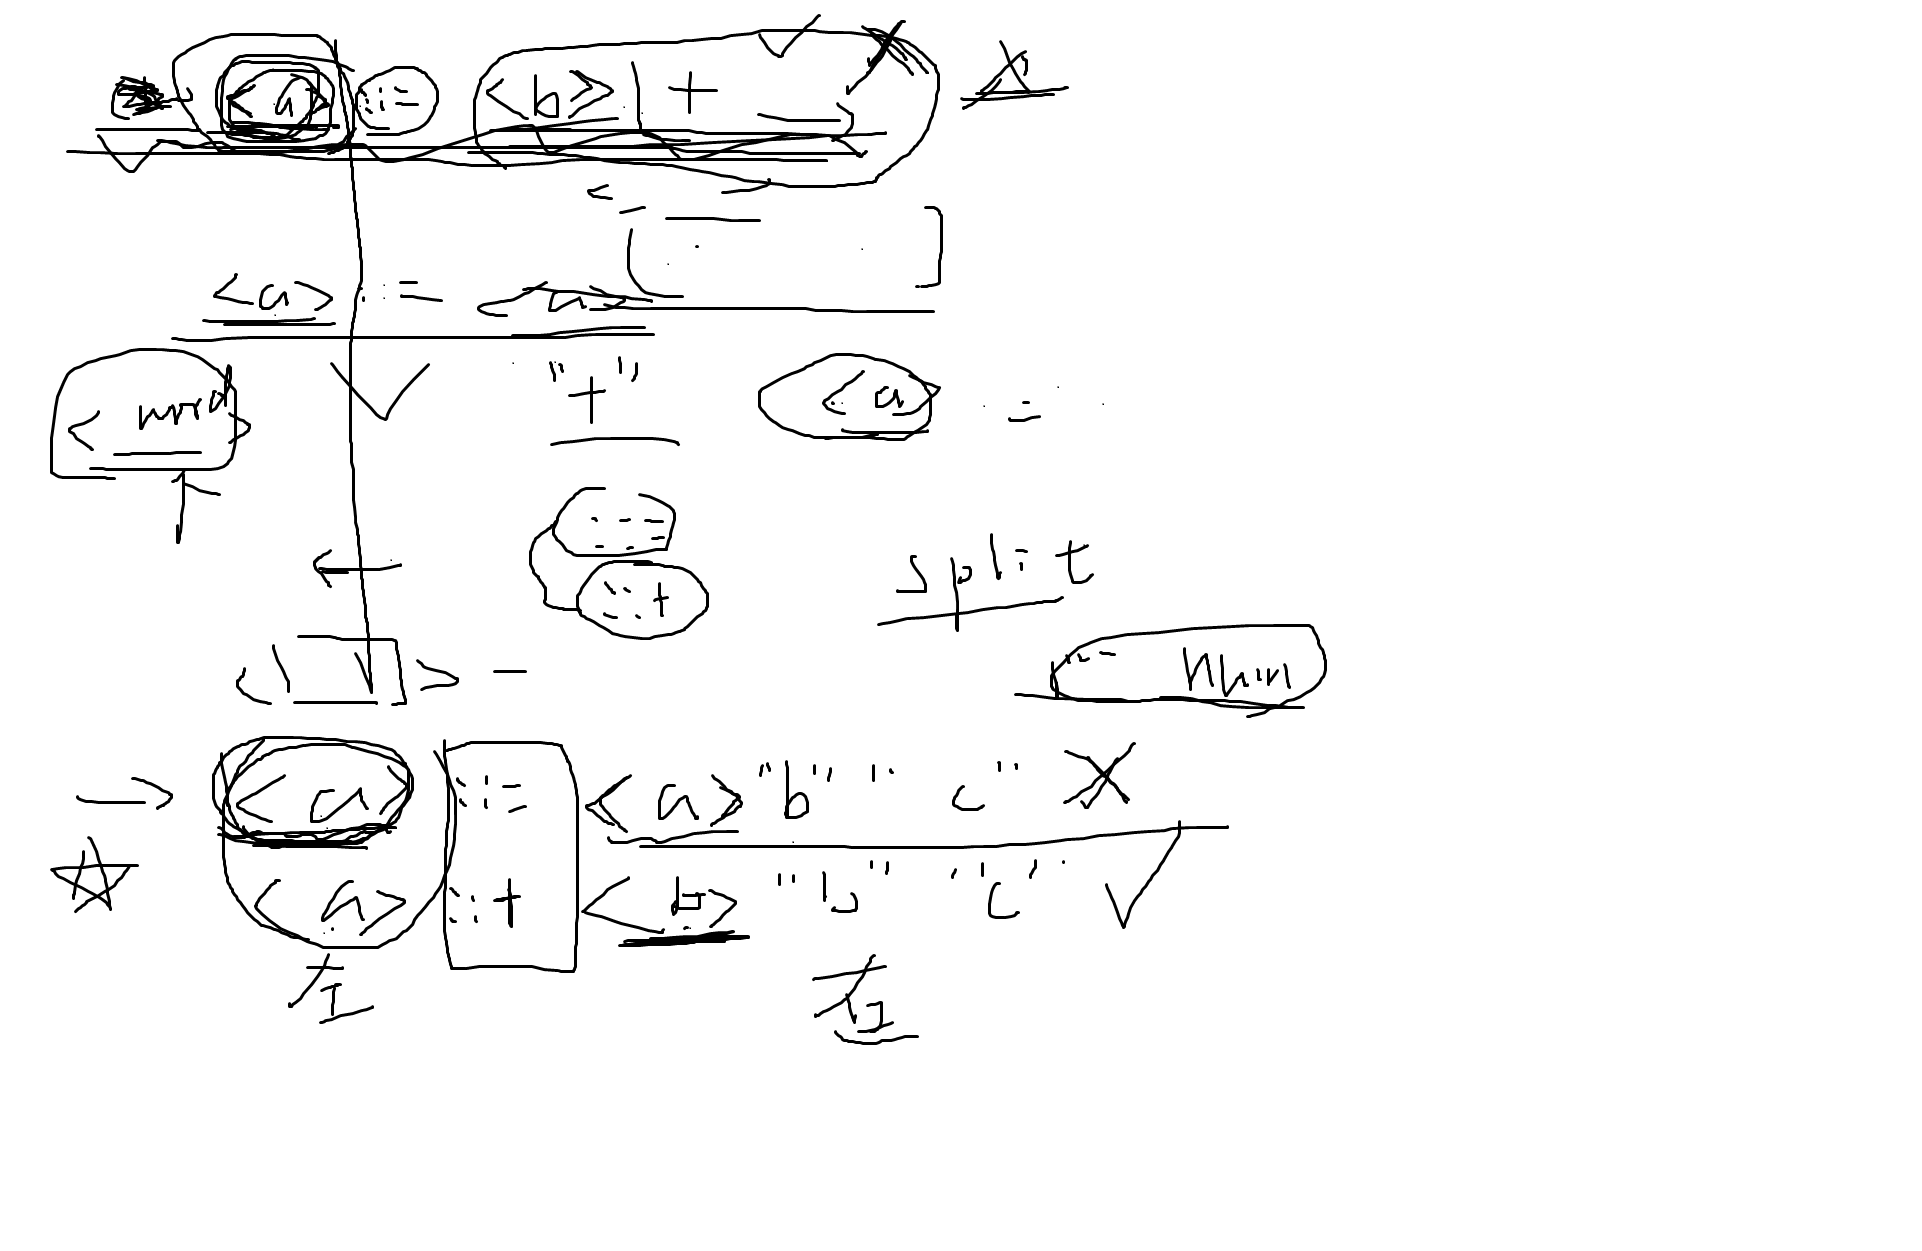 <a> ::= <b> | +
<a> ::= <a>
<word> "+" <a> =
::=
::+
split
<a> ::= <a> "b" "c"
<a> ::+ <b> "b" "c"
左 右